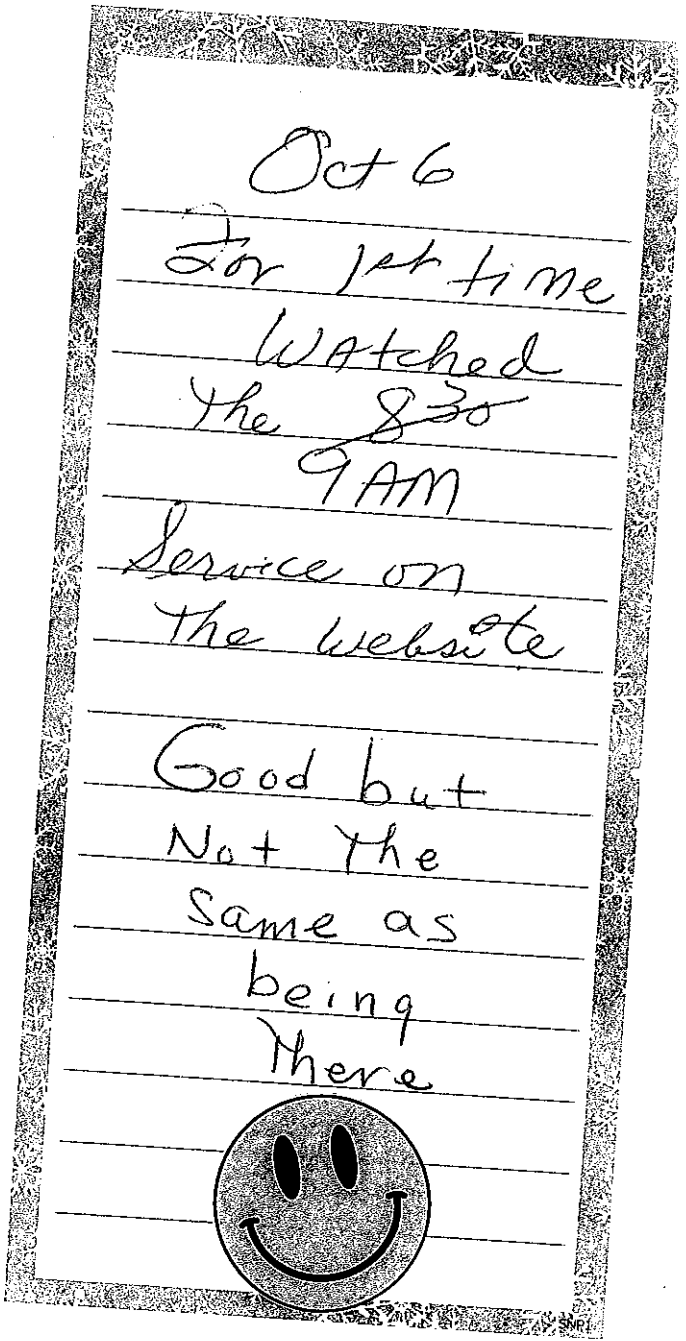 Oct 6
For 1st time
Watched
The 830
9 AM
Service on
The website
Good but
Not The
Same as
being
There